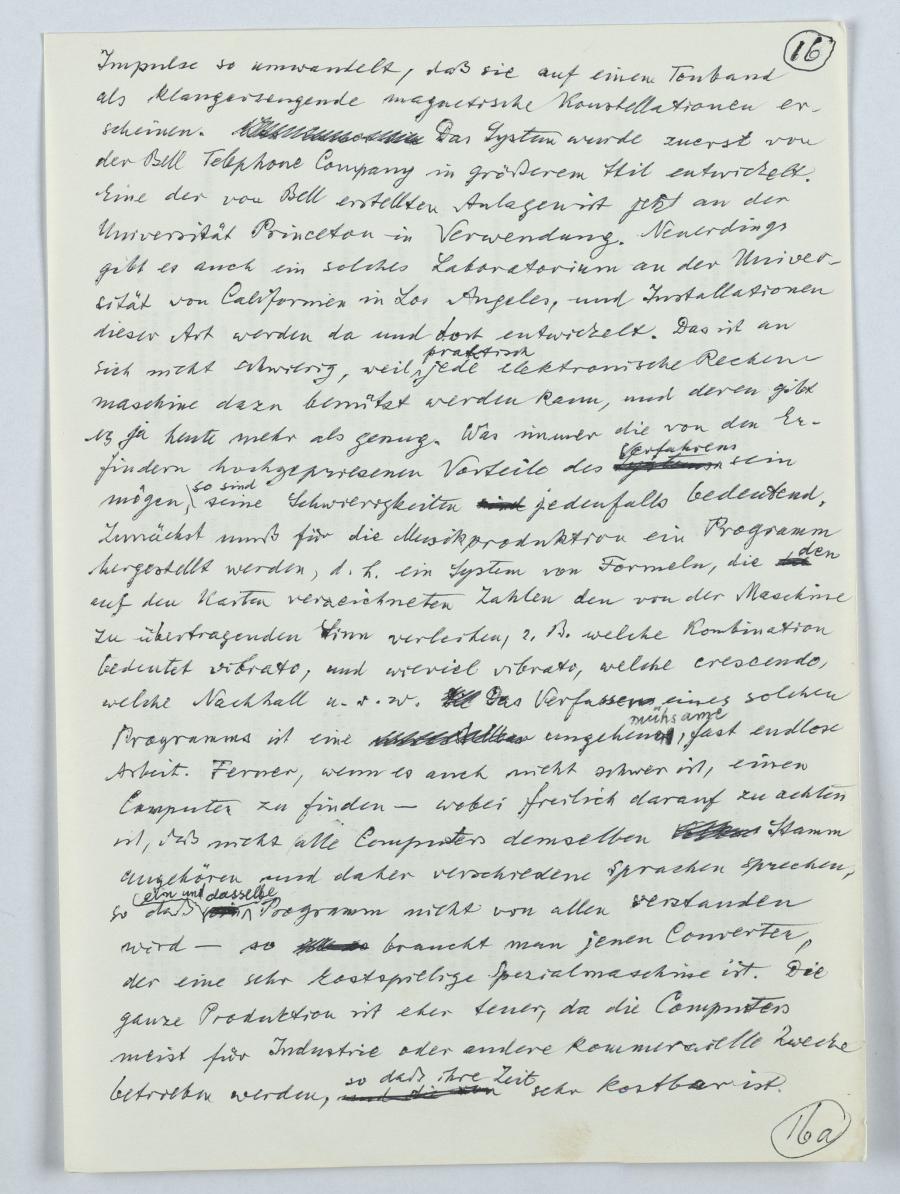 16
Impulse so umwandelt, daß sie auf einem Tonband
als klangerzeugende magnetische Konstellationen er-
scheinen. Das System wurde zuerst von
der Bell Telephone Company in größerem Stil entwickelt.
Eine der von Bell erstellten Anlagen ist jetzt an der
Universität Princeton in Verwendung. Neuerdings
gibt es auch ein solches Laboratorium an der Univer-
sität von Californien in Los Angeles, und Installationen
dieser Art werden da und dort entwickelt. Das ist an
sich nicht schwierig, weil praktisch jede elektronische Rechen-
maschine dazu benützt werden kann, und deren gibt
es ja heute mehr als genug. Was immer die von den Er-
findern hochgepriesenen Vorteile des Verfahrens sein
mögen, so sind seine Schwierigkeiten jedenfalls bedeutend.
Zunächst muß für die Musikproduktion ein Programm
hergestellt werden, d. h. ein System von Formeln, die den
auf den Karten verzeichneten Zahlen den von der Maschine
zu übertragenden Sinn verleihen, z. B. welche Kombination
bedeutet vibrato, und wieviel vibrato, welche crescendo,
welche Nachhall u. s. w. Das Verfassen eines solchen
Programms ist eine ungeheuer mühsame, fast endlose
Arbeit. Ferner, wenn es auch nicht schwer ist, einen
Computer zu finden — wobei freilich darauf zu achten
ist, daß nicht alle Computers demselben Stamm
angehören und daher verschiedene Sprachen sprechen,
so daß ein und dasselbe Programm nicht von allen verstanden
wird — so braucht man jenen Converter,
der eine sehr kostspielige Spezialmaschine ist. Die
ganze Produktion ist eher teuer, da die Computers
meist für Industrie oder andere kommerzielle Zwecke
betrieben werden, so daß ihre Zeit sehr kostbar ist.
16a